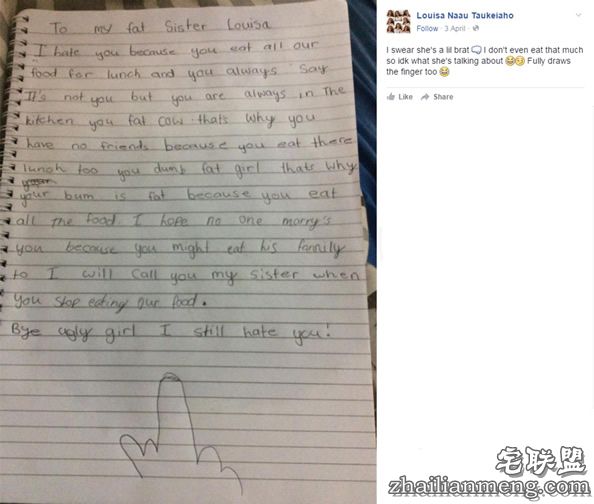 To my fat Sister Louisa
I hate you because you eat all our
food for lunch and you always say
It's not you but you are always in the
kitchen you fat cow thats why you
have no friends because you eat there
lunch too you dump fat girl thats why
your bum is fat because you eat
all the food. I hope no one marry's
you because you might eat his family
to I will call you my sister when
you stop eating our food.
Bye ugly girl I still hate you!
Louisa Naau Taukeiaho
Follow · 3 April ·
I swear she's a lil brat I don't even eat that much
so idk what she's talking about Fully draws
the finger too
Like Share
宅联盟
zhailianmeng.com